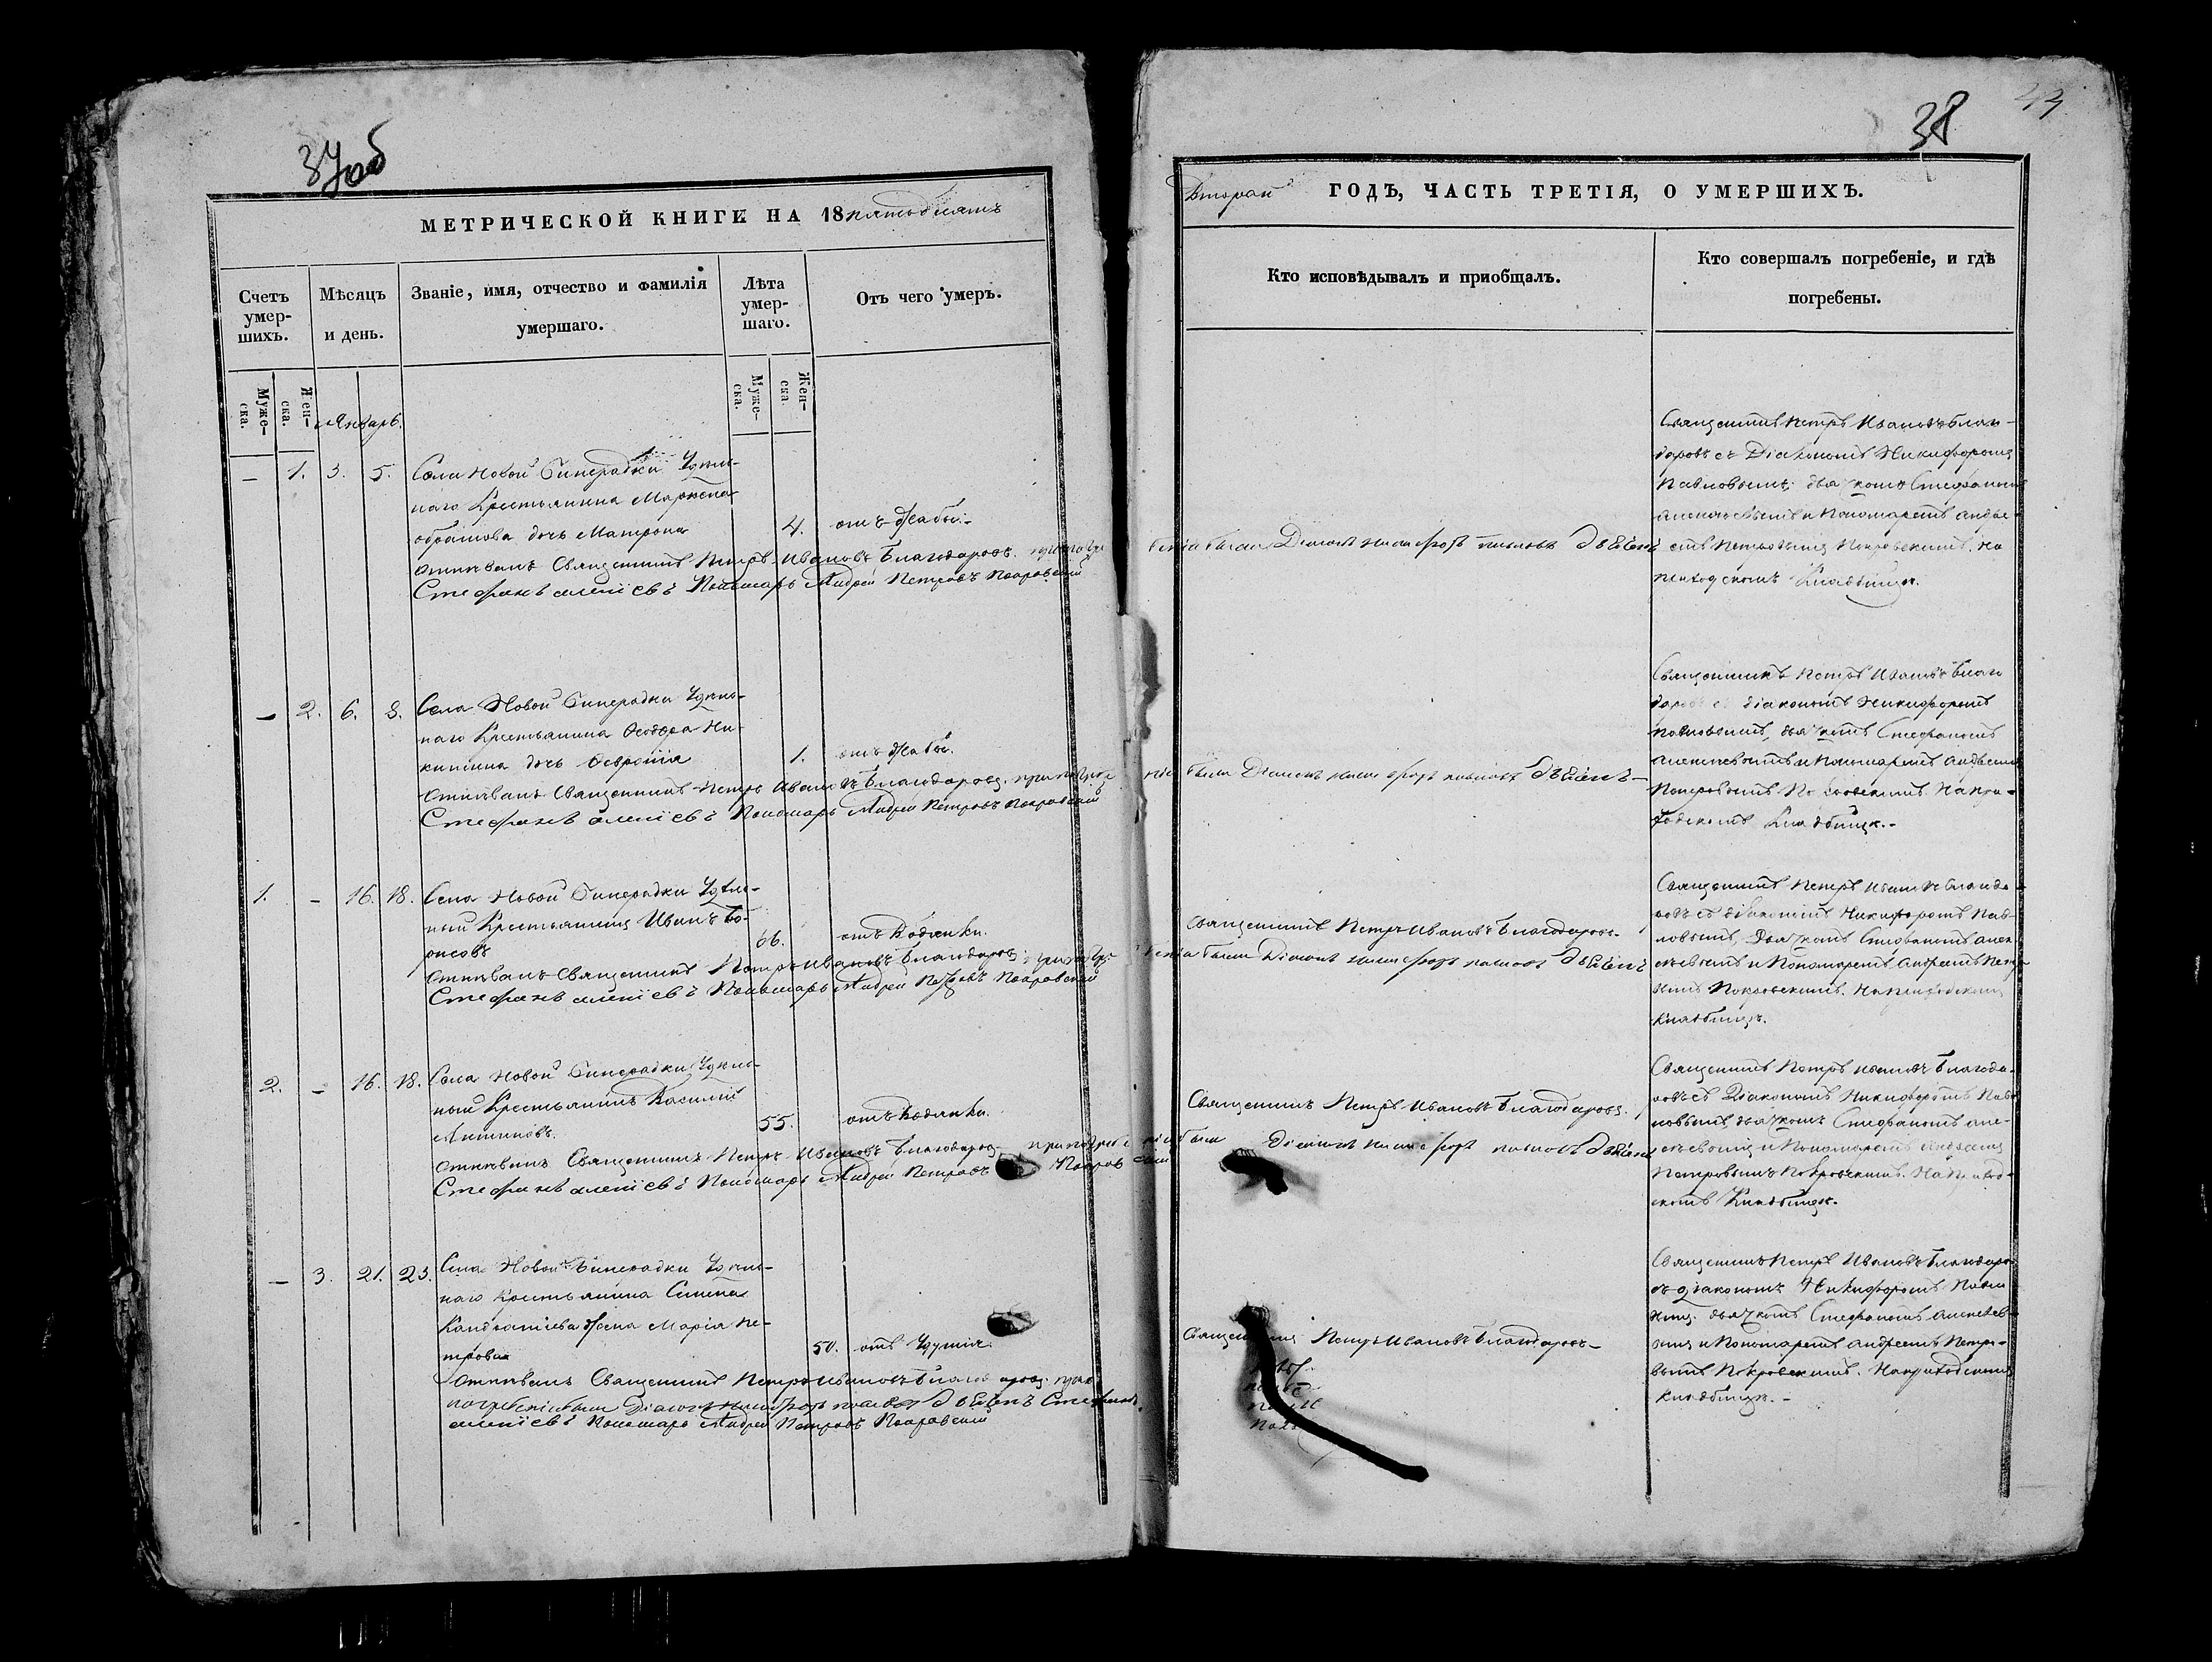 37об
МЕТРИЧЕСКОЙ КНИГЕ НА 18 пятьдесятъ
Счетъ умер-шихъ.
Мѣсяцъ и день.
Званіе, имя, отчество и фамилія умершаго.
Лѣта умер-шаго.
Отъ чего умеръ.
Муже-ска.
Жен-ска.
Муже-ска.
Жен-ска.
Январь.
— 1. 3. 5. Села Новой Бинерадки Удѣль-
наго Крестьянина
дочь Матрона
4. отъ жабы.
Отпѣвалъ Священникъ Петръ Ивановъ Благодаровъ. при погре
Стефанъ Алексіевъ Пономарь Андрей Петровъ Покровскій
— 2. 6. 8. Села Новой Бинерадки Удѣль-
наго Крестьянина Ѳеодора Ни-
китина дочь Ѳевронія
1. отъ жабы.
Отпѣвалъ Священникъ Петръ Ивановъ Благодаровъ. при погребе
Стефанъ Алексіевъ Пономарь Андрей Петровъ Покровскій
1. — 16. 18. Села Новой Бинерадки Удѣль-
ный Крестьянинъ Иванъ Бо-
рисовъ
66. отъ Водянки.
Отпѣвалъ Священникъ Петръ Ивановъ Благодаровъ. при погре
Стефанъ Алексіевъ Пономарь Андрей Петровъ Покровскій
2. — 16. 18. Села Новой Бинерадки Удѣль-
ный Крестьянинъ Василій
Антиповъ.
55. отъ Водянки.
Отпѣвалъ Священникъ Петръ Ивановъ Благодаровъ. при погребе
Стефанъ Алексіевъ Пономарь Андрей Петровъ Покровскій
— 3. 21. 23. Села Новой Бинерадки Удѣль-
наго Крестьянина Семена
Кандратіева жена Марія Пе-
трова
50. отъ Удушія.
Отпѣвалъ Священникъ Петръ Ивановъ Благодаровъ. при
погребеніи были Діаконъ Никифоръ Павловъ Стефанъ
Алексіевъ Пономарь Андрей Петровъ Покровскій
38
43
Второй ГОДЪ, ЧАСТЬ ТРЕТІЯ, О УМЕРШИХЪ.
Кто исповѣдывалъ и пріобщалъ.
Кто совершалъ погребеніе, и гдѣ погребены.
беніи были Діаконъ Никифоръ Павловъ
Священникъ Петръ Ивановъ Благо-
даровъ съ Діакономъ Никифоромъ
Павловымъ, дьячкомъ Стефаномъ
Алексѣевымъ и Пономаремъ Андре-
емъ Петровымъ Покровскимъ. На
приходскомъ Кладбищѣ.
ніи были Діаконъ Никифоръ Павловъ
Священникъ Петръ Ивановъ Благо
даровъ съ діакономъ Никифоромъ
Павловымъ, дьячкомъ Стефаномъ
Алексѣевымъ и Пономаремъ Андреемъ
Петровымъ Покровскимъ. На при-
ходскомъ Кладбищѣ.-
Священникъ Петръ Ивановъ Благодаровъ.
беніи были Діаконъ Никифоръ Павловъ
Священникъ Петръ Ивановъ Благода-
ровъ съ діакономъ Никифоромъ Пав-
ловымъ, Дьячкомъ Стефаномъ Алек-
сѣевымъ и Пономаремъ Андреемъ Петро-
вымъ Покровскимъ. На приходскомъ
Кладбищѣ.
Священникъ Петръ Ивановъ Благодаровъ.
ніи были Діаконъ Никифоръ Павловъ
Священникъ Петръ Ивановъ Благода-
ровъ съ Діакономъ Никифоромъ Пав-
ловымъ, дьячкомъ Стефаномъ Але-
ксѣевымъ и Пономаремъ Андреемъ
Петровымъ Покровскимъ. На приход-
скомъ Кладбищѣ.
Священникъ Петръ Ивановъ Благодаровъ-
Священникъ Петръ Ивановъ Благодаро-
въ діакономъ Никифоромъ Павло
вымъ. дьячкомъ Стефаномъ Алексѣев-
ымъ и Пономаремъ Андреемъ Петро-
вымъ Покровскимъ. На приходскомъ
Кладбищѣ.-